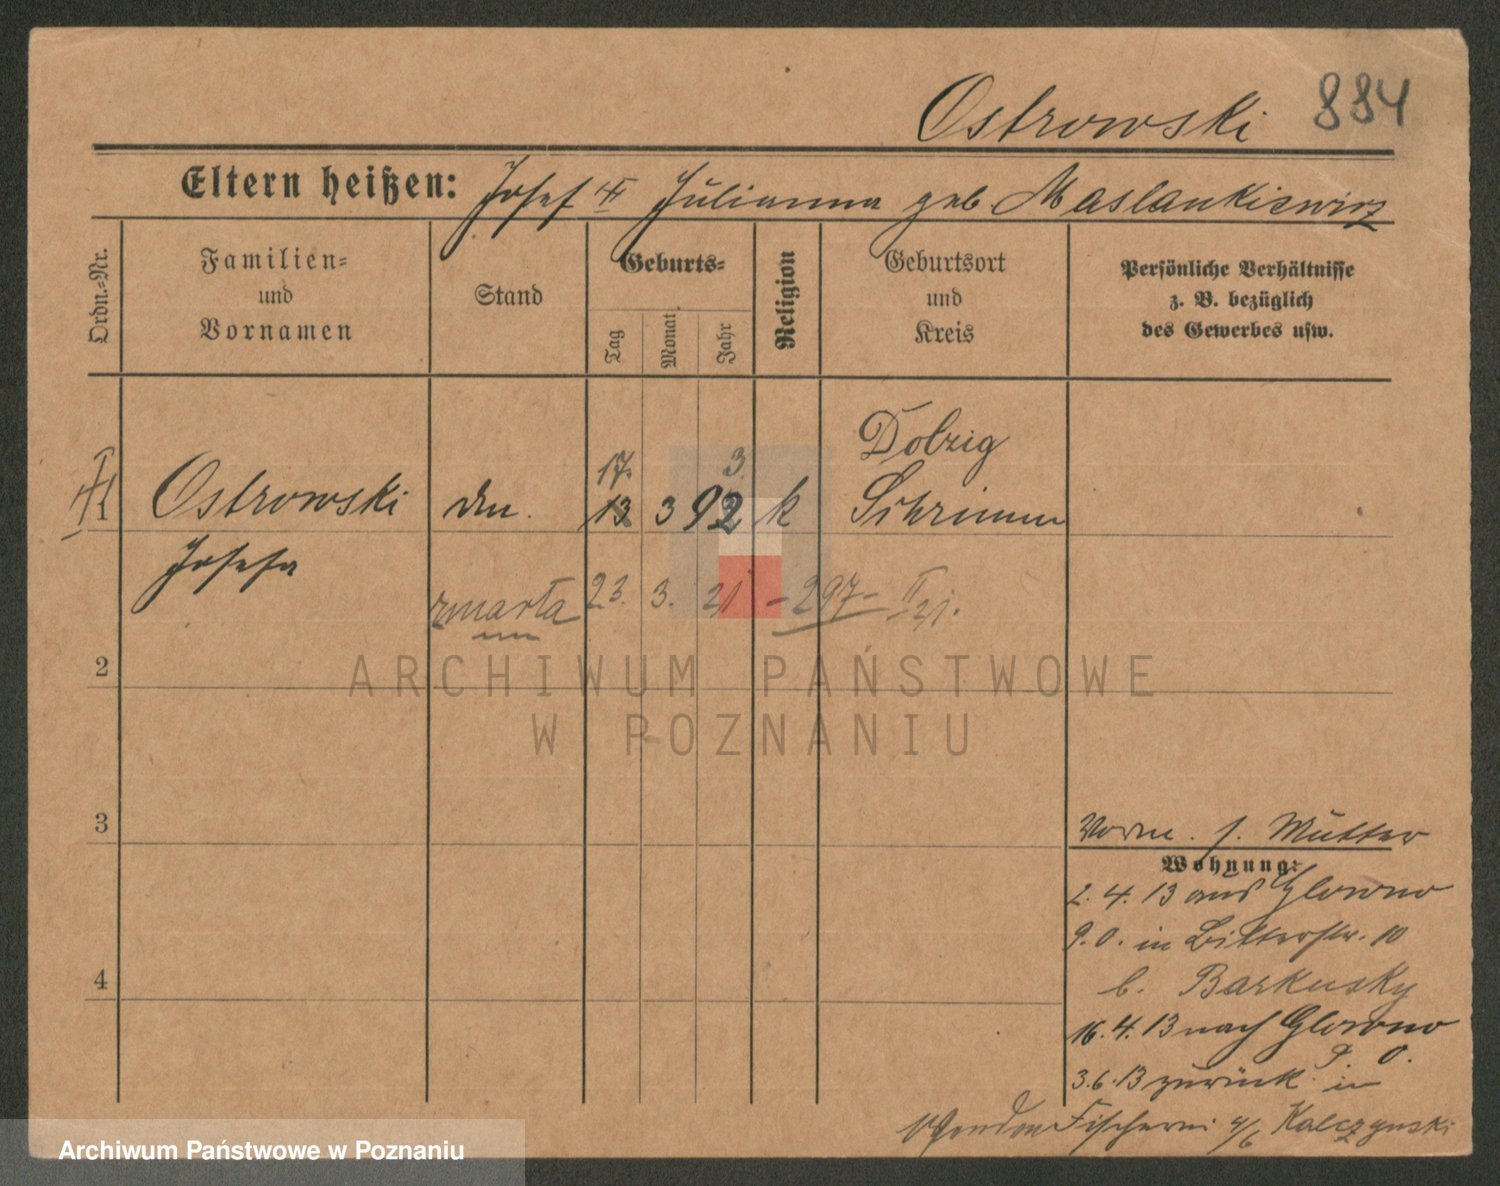 Ostrowski 884
Eltern heißen: Josef Julianna geb. Maslankiewicz
Ordn.-Nr.
Familien-
und
Vornamen
Stand
Geburts-
Tag
Monat
Jahr
Religion
Geburtsort
und
Kreis
Persönliche Verhältnisse
z. B. bezüglich
des Gewerbes usw.
Dolzig
17. 3.
1 Ostrowski 13 3 92 k Schrimm
Josefa
zmarła 23. 3. 21 - 297- II 21.
2
ARCHIWUM PAŃSTWOWE
W POZNANIU
3
Vorm. s. Mutter
Wohnung:
2. 4. 13 aus Glowno
P. O. in Bitterstr. 10
b. Barkusky
4
16. 4. 13 nach Glowno
P. O.
3. 6. 13 zurück in
Fischerei 4/6 Kalczynski
Archiwum Państwowe w Poznaniu